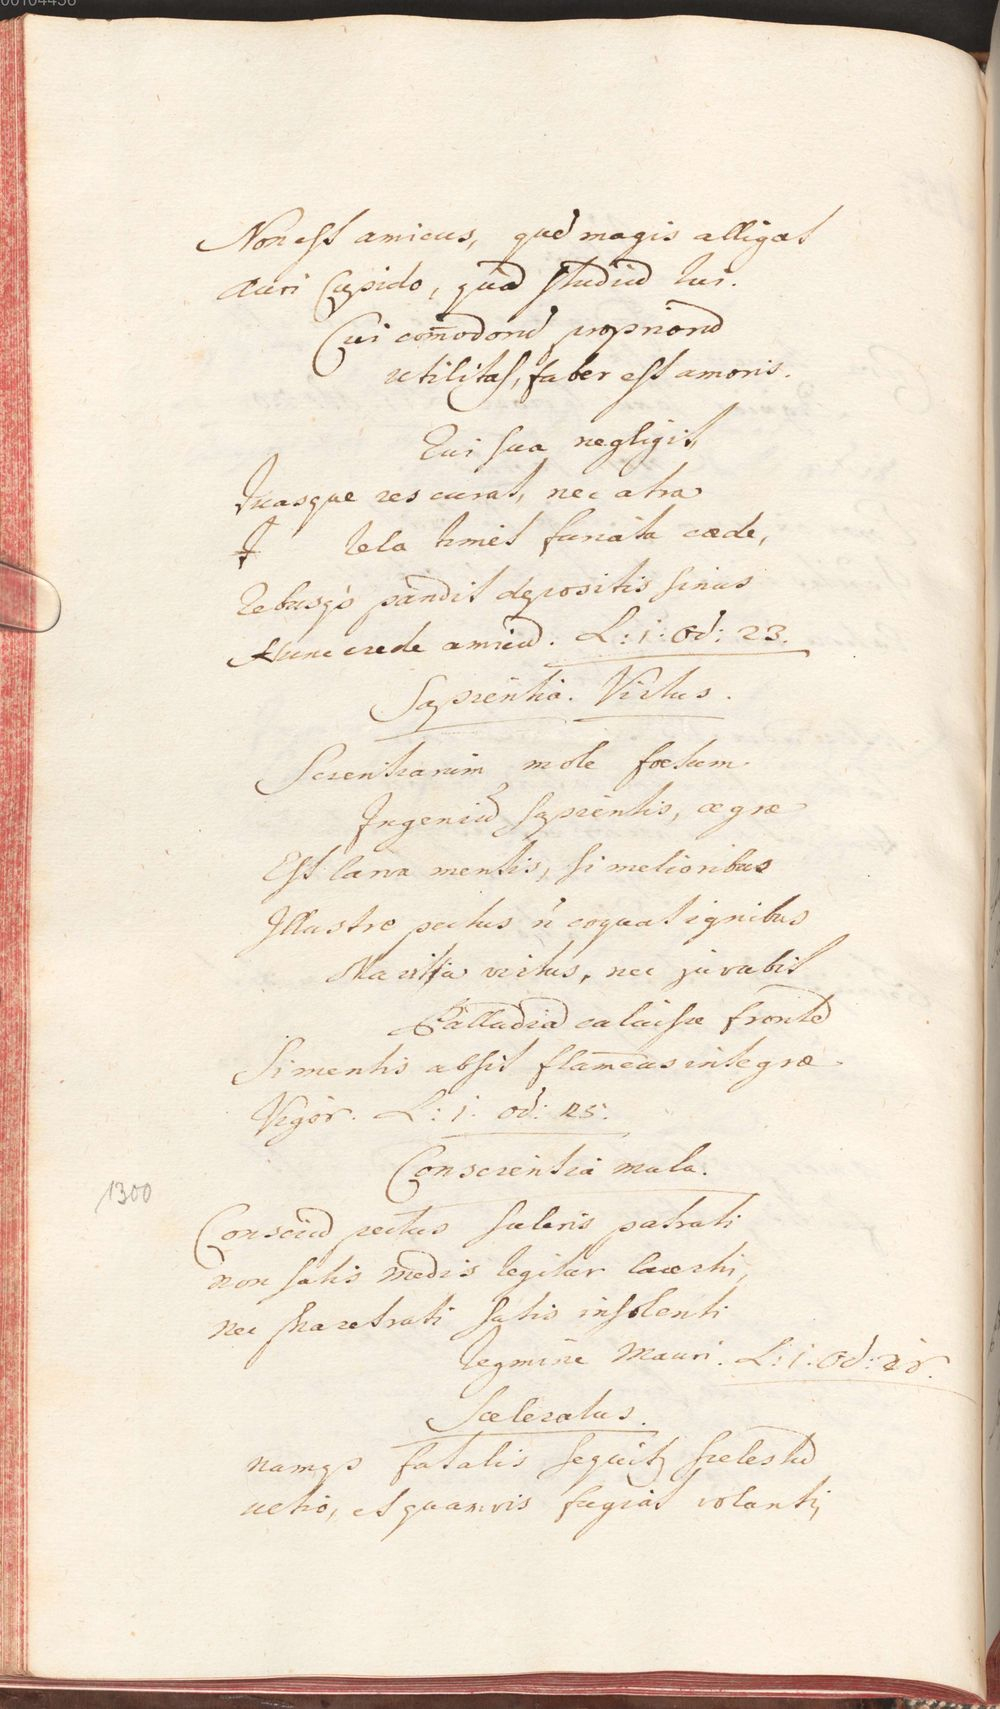 00104436
Non est amicus, quē magis alligat
Auri Cupido, quā studiū tui.
Cui com̄odorū propriorū
utilitas, faber est amoris.
Qui sua negligit,
tuasque res curat, nec atra
tela timet furiata cæde,
rebusq3 pandit depositis sinus
Hunc crede amicū. L: 1: Od: 23.
Sapientia. Virtus.
Scientiarum mole foetum
Ingeniū sapientis, ægræ
Est larva mentis, si melioribus
Illustre pectus ñ coquat ignibus
Navita virtus, nec juvabit
Palladiā caluisse frontē
Si mentis absit flam̄eas integræ
Vigor. L: 1: od: 25.
Conscientia mala.
1300
Consciū pectus sceleris patrati
non satis Medis tegitur lacerti,
nec pharetrati satis insolenti
tegmine Mauri. L: 1: Od: 28.
Sceleratus.
namq3 fatalis sequit scelestū
ultio, et quamvis fugiat volanti,